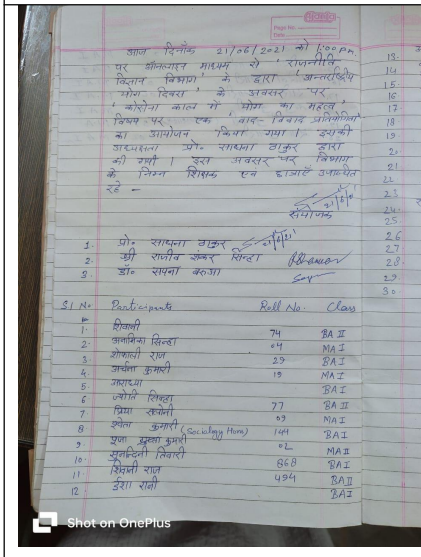 Page No.
Date
आज दिनाँक 21/06/2021 को 1:00 Pm
पर ऑनलाइन माध्यम से 'राजनीति
विज्ञान विभाग' के द्वारा 'अन्तर्राष्ट्रीय
योग दिवस' के अवसर पर
'कोरोना काल में योग का महत्व'
विषय पर एक 'वाद-विवाद प्रतियोगिता'
का आयोजन किया गया। इसकी
अध्यक्षता प्रो० साधना ठाकुर द्वारा
की गयी। इस अवसर पर विभाग
के निम्न शिक्षक एवं छात्राएँ उपस्थित
रहे –
संयोजक
1. प्रो० साधना ठाकुर
2. श्री राजीव शंकर सिन्हा
3. डॉ० सपना बरुआ
Sl No. Participants Roll No. Class
1. शिवानी 74 BA II
2. अनामिका सिन्हा 04 MA I
3. शेफाली राज 29 BA I
4. अर्चना कुमारी 19 MA I
5. आराध्या BA I
6 ज्योति सिन्हा 77 BA II
7. प्रिया 09 MA I
8 श्वेता कुमारी (Sociology Hons) 144 BA I
9. पूजा कुमारी 02 MA II
10. सुनन्दिनी तिवारी 868 BA I
11 शिवानी राज 494 BA II
12. ईशा रानी BA I
13.
14
15.
16
17
18
19
20
21
22
23
24.
25.
26
27.
28.
29.
30.
Shot on OnePlus